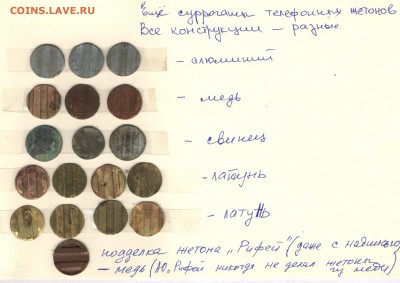 COINS.LAVE.RU
Ещё суррогаты телефонных жетонов
Все конструкции – разные
– алюминий
– медь
– свинец
– латунь
– латунь
подделка жетона „Рифей" (даже с надписью)
– медь (АО „Рифей никогда не делал жетоны
из меди)